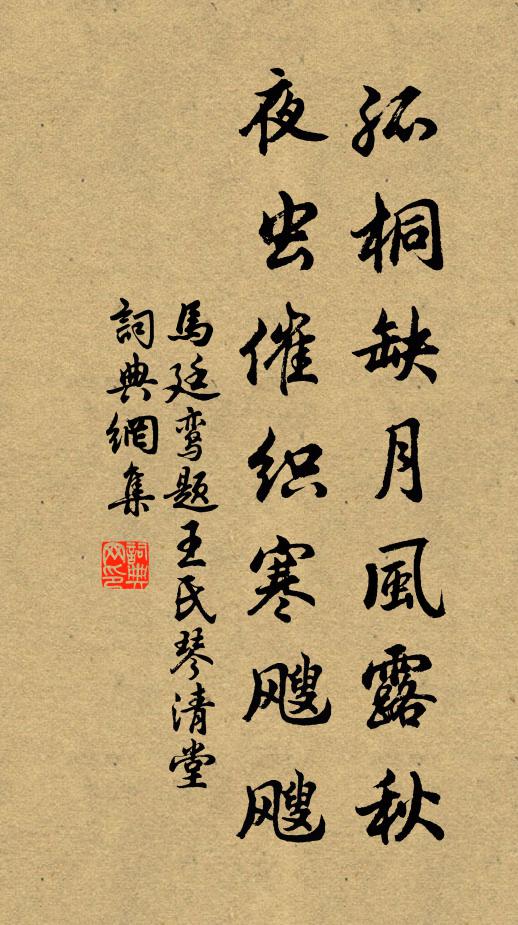 孤桐缺月風露秋
夜虫催织寒飕飕
馬廷鸾題王氏琴清堂
詞典網集
詞典网印